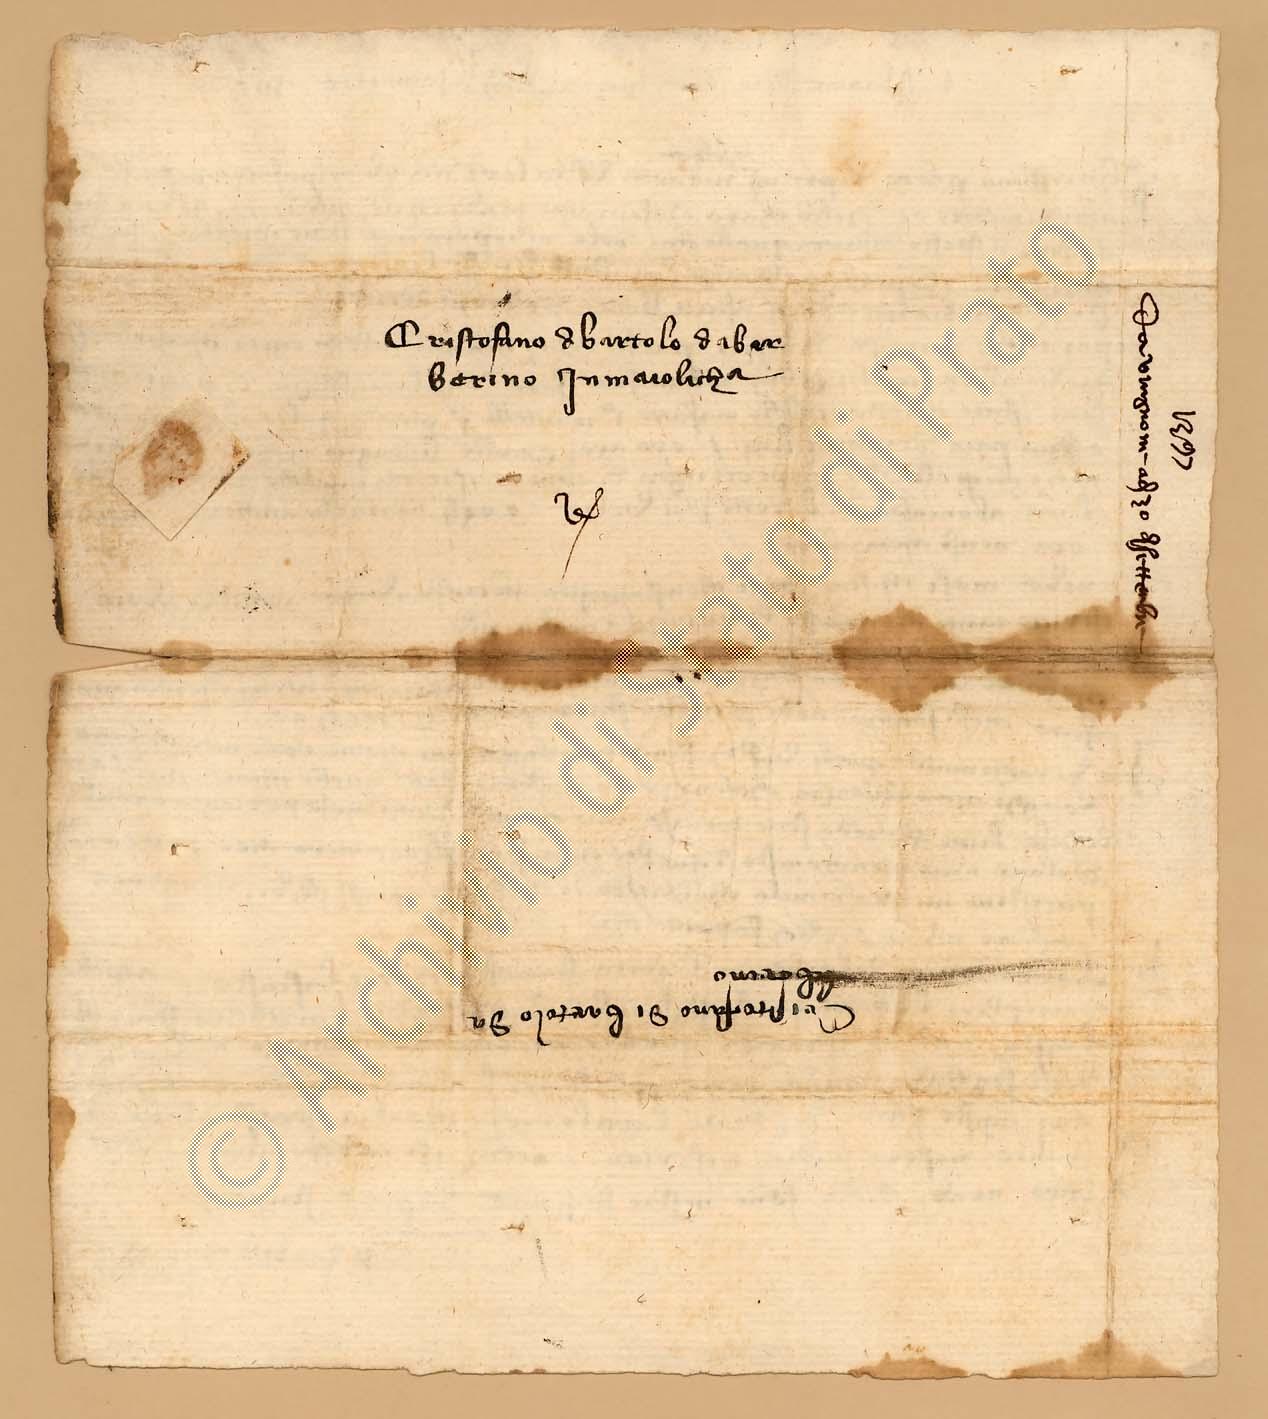 Cristofano d bartolo dabar
berino Inmaiolicha
1397
Da vingnone adì 20 di settenbre
Cristofano di bartolo da
barberino
© Archivio di Stato di Prato